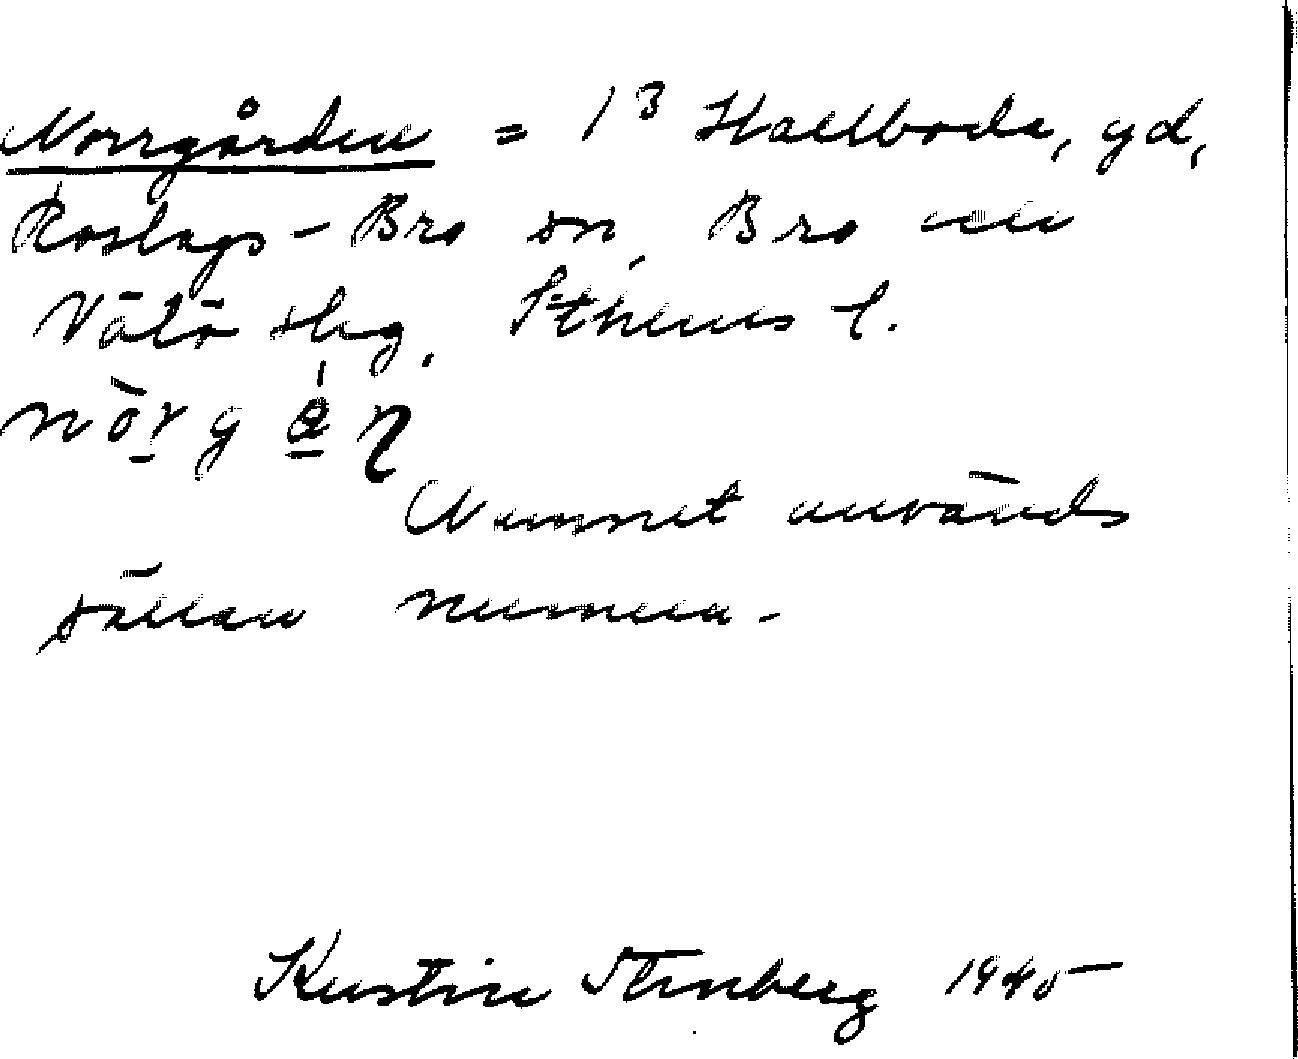 Norrgården = 1³ Hallboda, gd,
Roslags-Bro sn, Bro och
Vätö skg, Sthlms l.
Namnet används
sällan numera.
Kerstin Stenberg 1945